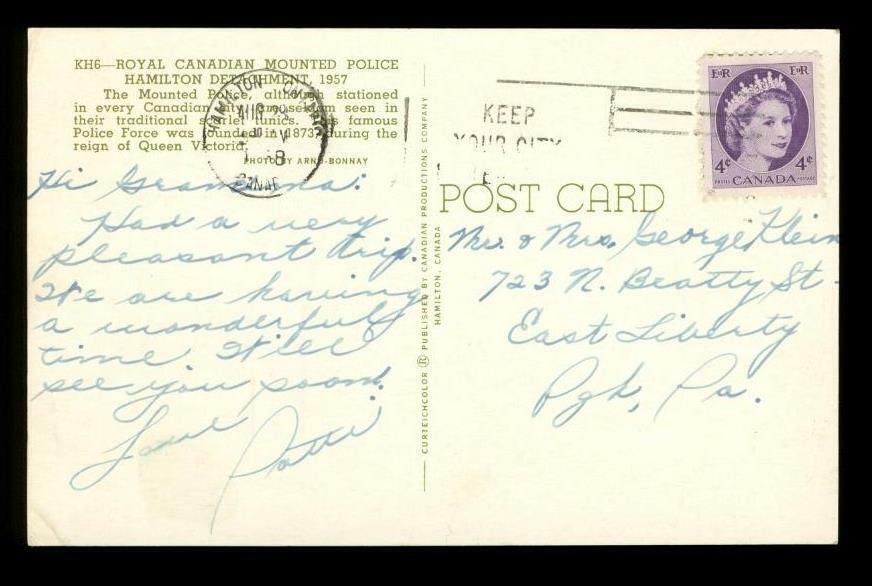 KH6—ROYAL CANADIAN MOUNTED POLICE
HAMILTON DETACHMENT, 1957
The Mounted Police, although stationed
in every Canadian city, are seldom seen in
their traditional scarlet tunics. This famous
Police Force was founded in 1873, during the
reign of Queen Victoria.
PHOTO BY ARNO-BONNAY
Hi Gramma:
Had a very
pleasant trip.
We are having
a wonderful
time. Will
see you soon.
Love
Patti
CURTEICHCOLOR ® PUBLISHED BY CANADIAN PRODUCTIONS COMPANY
HAMILTON, CANADA
HAMILTON
AUG
CANADA
KEEP
YOUR CITY
EIIR EIIR
4¢ 4¢
POSTES CANADA POSTAGE
POST CARD
Mr. & Mrs. George Klein
723 N. Beatty St.
East Liberty
Pgh, Pa.